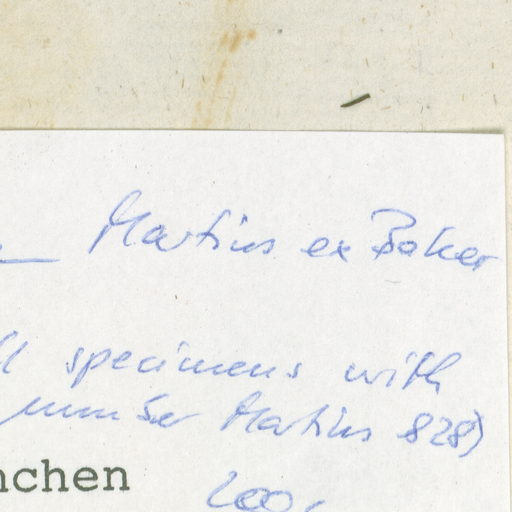 Martius ex Baker
specimens with
number Martius 828)
nchen 200